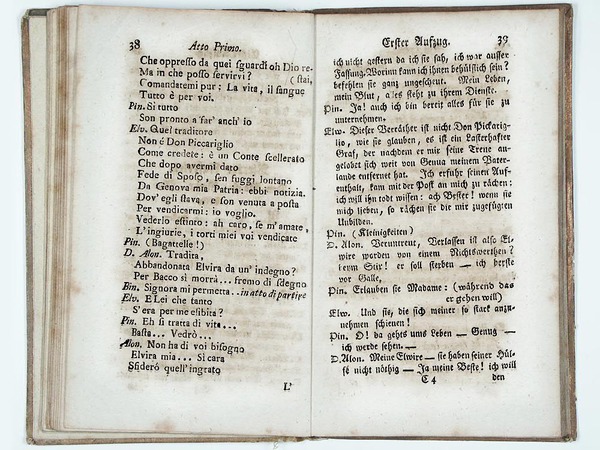 38 Atto Primo.
Che oppresso da quei sguardi oh Dio re-
Ma in che posso servirvi ? (stai,
Comandatemi pur : La vita, il sangue
Tutto è per voi.
Pin. Si tutto
Son pronto a far' anch' io
Elv. Quel traditore
Non é Don Piccariglio
Come credete : è un Conte scellerato
Che dopo avermi dato
Fede di Sposo, sen fuggì lontano
Da Genova mia Patria : ebbi notizia.
Dov' egli stava, e son venuta a posta
Per vendicarmi : io voglio.
Vederlo estinto : ah caro, se m'amate,
L'ingiurie, i torti miei voi vendicate
Pin. (Bagattelle !)
D. Alon. Tradita,
Abbandonata Elvira da un' indegno ?
Per Bacco si morrà... fremo di sdegno
Bin. Signora mi permetta.. in atto di partire
Elv. E Lei che tanto
S'era per me esibita ?
Pin. Eh si tratta di vita...
Basta... Vedrò...
Alon. Non ha di voi bisogno
Elvira mia... Si cara
Sfiderò quell' ingrato
L'
Erster Aufzug. 39
ich nicht gestern da ich sie sah, ich war ausser
Fassung. Worinn kann ich ihnen behülflich sein?
befehlen sie ganz ungescheut. Mein Leben,
mein Blut, alles steht zu ihrem Dienste.
Pin. Ja! auch ich bin bereit alles für sie zu
unternehmen.
Elw. Dieser Verräther ist nicht Don Pickarig-
lio, wie sie glauben, es ist ein Lasterhafter
Graf, der nachdem er mir seine Treue an-
gelobet sich weit von Genua meinem Vater-
lande entfernet hat. Ich erfuhr seinen Auf-
enthalt, kam mit der Post an mich zu rächen:
ich will ihn todt wissen: ach Bester! wenn sie
mich lieben, so rächen sie die mir zugefügten
Unbilden.
Pin. (Kleinigkeiten)
D. Alon. Veruntreut, Verlassen ist also El-
wire worden von einem Nichtswerthen?
beym Stix! er soll sterben — ich berste
vor Galle,
Pin. Erlauben sie Madame: (während das
er gehen will)
Elw. Und sie, die sich meiner so stark anzu-
nehmen schienen!
Pin. O! da gehts ums Leben — Genug —
ich werde sehen. —
D. Alon. Meine Elwire — sie haben seiner Hül-
fe nicht nöthig — Ja meine Beste! ich will
C 4 den